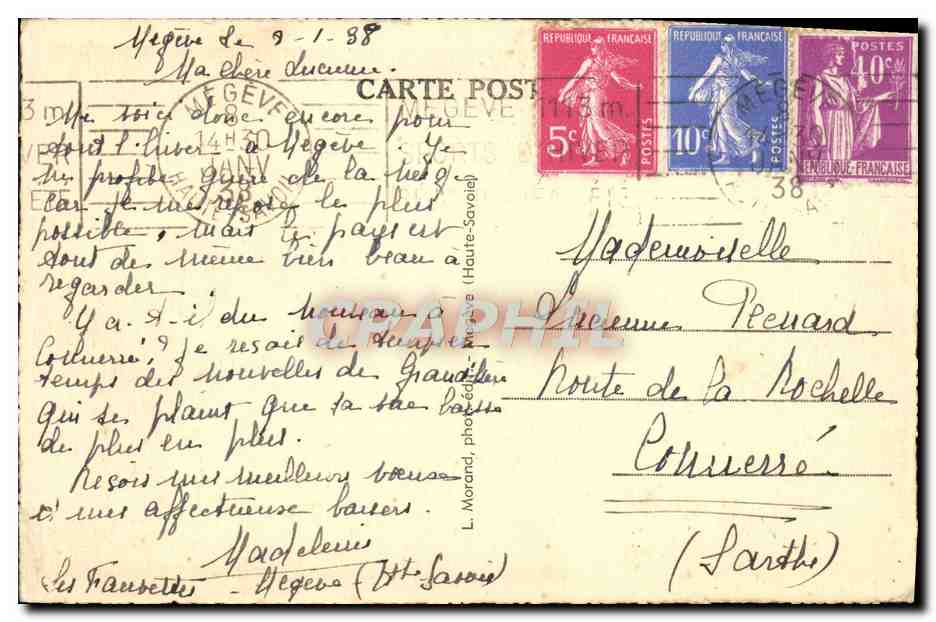 Megève le 9-1-38
Ma chère Lucienne.
CARTE POST
Me voici donc encore pour
tout l'hiver à Megève. Je
ne profite guère de la neige
car je me repose le plus
possible, mais le pays est
tout de même bien beau à
regarder.
Y a-t-il du nouveau à
Connerré? Je reçois de temps en
temps des nouvelles de Grand'Mère
qui se plaint que sa vue baisse
de plus en plus.
Reçois mes meilleurs voeux
et mes affectueux baisers.
Madeleine
Les Fauvettes Megève (Hte Savoie)
L. Morand, phot. édit. - Megève (Haute-Savoie)
REPUBLIQUE FRANÇAISE
5c
POSTES
REPUBLIQUE FRANÇAISE
10c
POSTES
POSTES
40c
REPUBLIQUE-FRANÇAISE
MEGÈVE
14H30
JANV
38
HAUTE-SAVOIE
MEGÈVE 1113 m.
SPORTS
3 m.
ÉTÉ
MEGÈVE
38
Mademoiselle
Lucienne Renard
Route de La Rochelle
Connerré
(Sarthe)
CPAPHIL